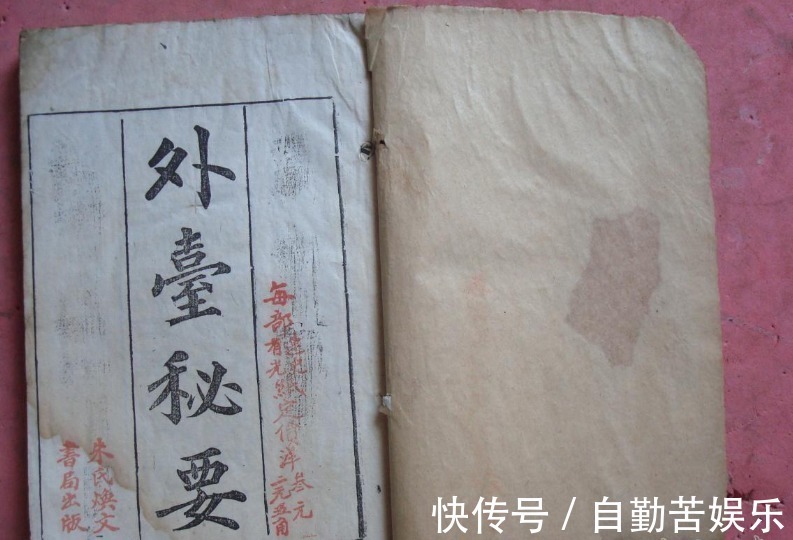 每部
連史紙
有光紙
定價洋
叁元
二元五角
外臺秘要
朱氏煥文
書局出版
快传号 / 自勤苦娱乐